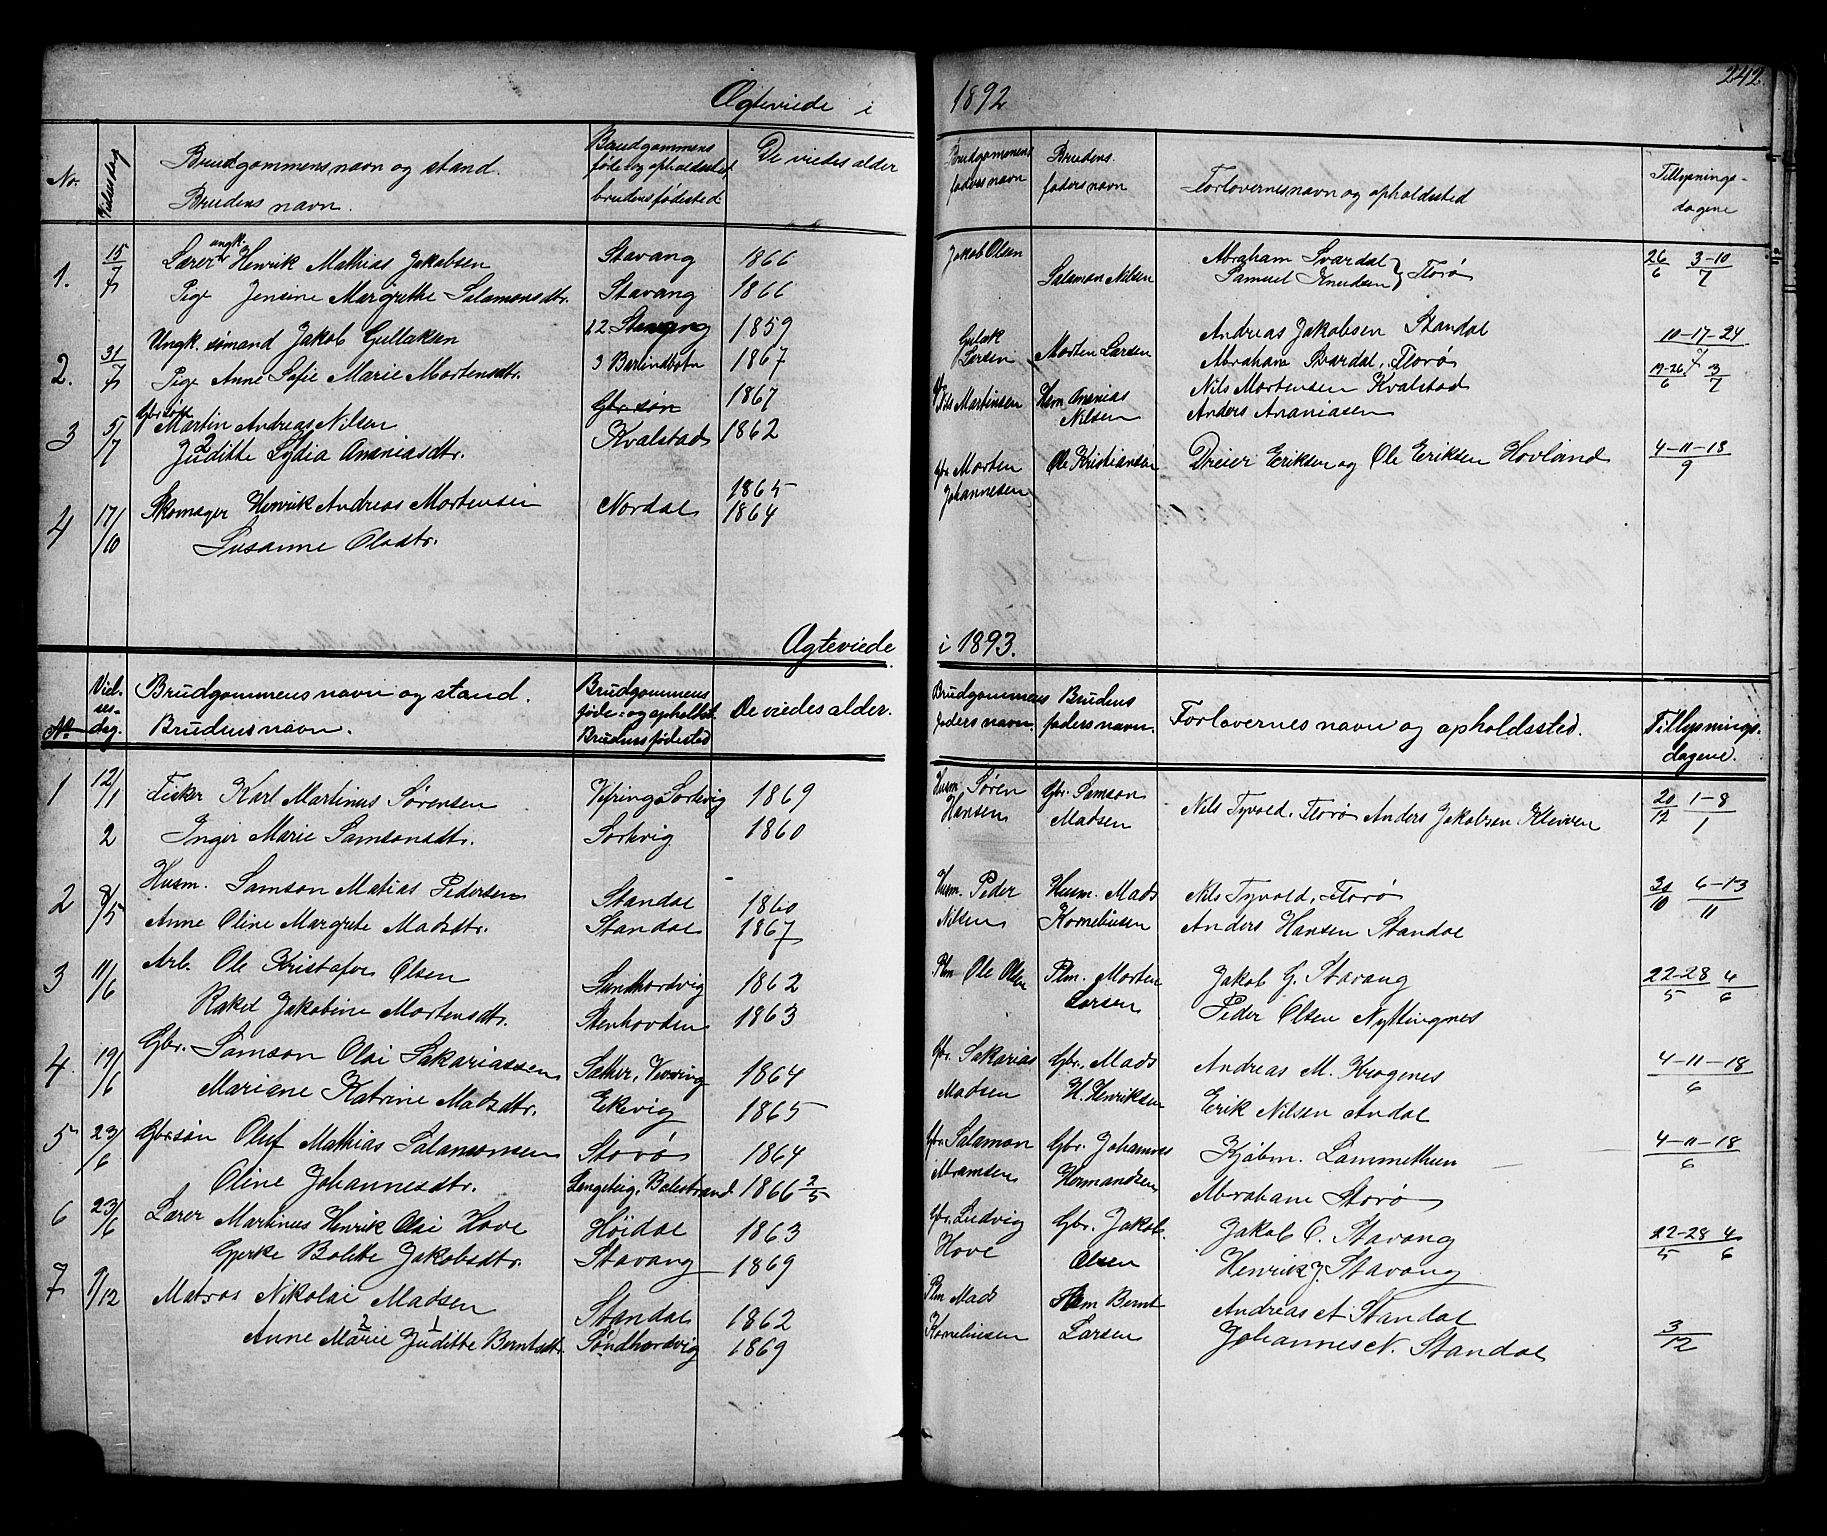 242.
Ægteviede i 1892
No. Vielsesdag Brudgommens navn og stand. Brudgommens De viedes alder Brudgommens Brudens Forlovernes navn og opholdssted Tillysnings-
Brudens navn. føde- og opholdssted faders navn faders navn dagene
brudens fødested
1. 15/7 Lærer ungk. Henrik Mathias Jakobsen Stavang 1866 Jakob Olsen Abraham Svardal } Florø 26/6 3-10/7
Pige Jensine Margrethe Salamonsdtr. Stavang 1866 Salamon Nilsen Samuel Knudsen
2. 31/7 Ungk. sømand Jakob Gullaksen Stavang 1859 Gulak Larsen Morten Larsen Andreas Jakobsen Standal 10-17-24/7
Pige Anne Sofie Marie Mortensdtr. Barlindbotn 1867 Abraham Svardal, Florø
3 5/7 Gbr søn Martin Andreas Nilsen Gbr søn 1867 Nils Martinsen Ananias Nilsen Nils Mortensen Kvalstad 19-26/6 3/7
2 Juditte Lydia Ananiasdtr. Kvalstad 1862 Anders Ananiasen
4 17/10 Skomager Henrik Andreas Mortensen Nordal 1865 gbr Morten Johannesen Ole Kristiansen Dreier Eriksen og Ole Eriksen Hovland 4-11-18/9
Susanne Olsdtr. 1864
Ægteviede i 1893.
No Vielsesdag. Brudgommens navn og stand. Brudgommens De viedes alder. Brudgommens Brudens Forlovernes navn og opholdssted. Tillysnings-
Brudens navn. føde- og opholdst. faders navn. faders navn. dagene.
Brudens fødested
1 12/1 Fisker Karl Martinus Sørensen Vefring, Sortevig 1869 Husm. Søren Hansen Gbr. Samson Madsen Nils Tyvold, Florø Anders Jakobsen Kleiven 20/12 1-8/1
2 Inger Marie Samsonsdtr. Sortevig 1860
2 8/5 Husm. Samson Matias Pedersen Standal 1860 Husm. Peder Nilsen Husm. Mads Kornelius­en Nils Tyvold, Florø 30/10 6-13/11
Anne Oline Margrete Madsdtr. Standal 1867 Anders Hansen Standal
3 11/6 Arb. Ole Kristafor Olsen Sundhordvig 1862 Plm Ole Olsen Plm. Morten Larsen Jakob G. Stavang 22-28/5 4/6
Rakel Jakobine Mortensdtr. Stenhovden 1863 Peder Olsen Nyttingnes
4 19/6 Gbr. Samson Olai Sakariassen Sæther, Vevring 1864 Gbr. Sakarias Madsen Gbr. Mads H. Henriksen Andreas M. Krogenes 4-11-18/6
Mariane Katrine Madsdtr. Ekevig 1865 Erik Nilsen Andal
5 23/6 Gbr.søn Oluf Mathias Salamonsen Storø 1864 Gbr. Salamon Abramsen Gbr. Johannes Hermandsen Kjøbm. Lammethun 4-11-18/6
Oline Johannesdtr. Balestrand 1866 2/5 Abraham Storø
6 23/6 Lærer Martinus Henrik Olai Hove Høidal 1863 Gbr. Ludvig Hove Gbr. Jakob Olsen Jakob O. Stavang 22-28/5 4/6
Gjerke Bolette Jakobsdtr. Stavang 1869 Henrik J. Stavang
7 9/12 Matros Nikolai Madsen Standal 1862 Plm Mads Korneliusen Plm Bernt Larsen Andreas A. Standal 3/12
Anne 2 Marie 1 Juditte Berntsdtr. Søndhordvig 1869 Johannes N. Standal